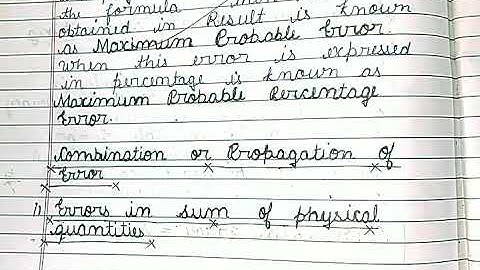 the formula
obtained in Result is known
as Maximum Probable Error.
When this error is expressed
in percentage is known as
Maximum Probable Percentage
Error.
Combination or Propagation of
Error
1) Errors in sum of physical
quantities